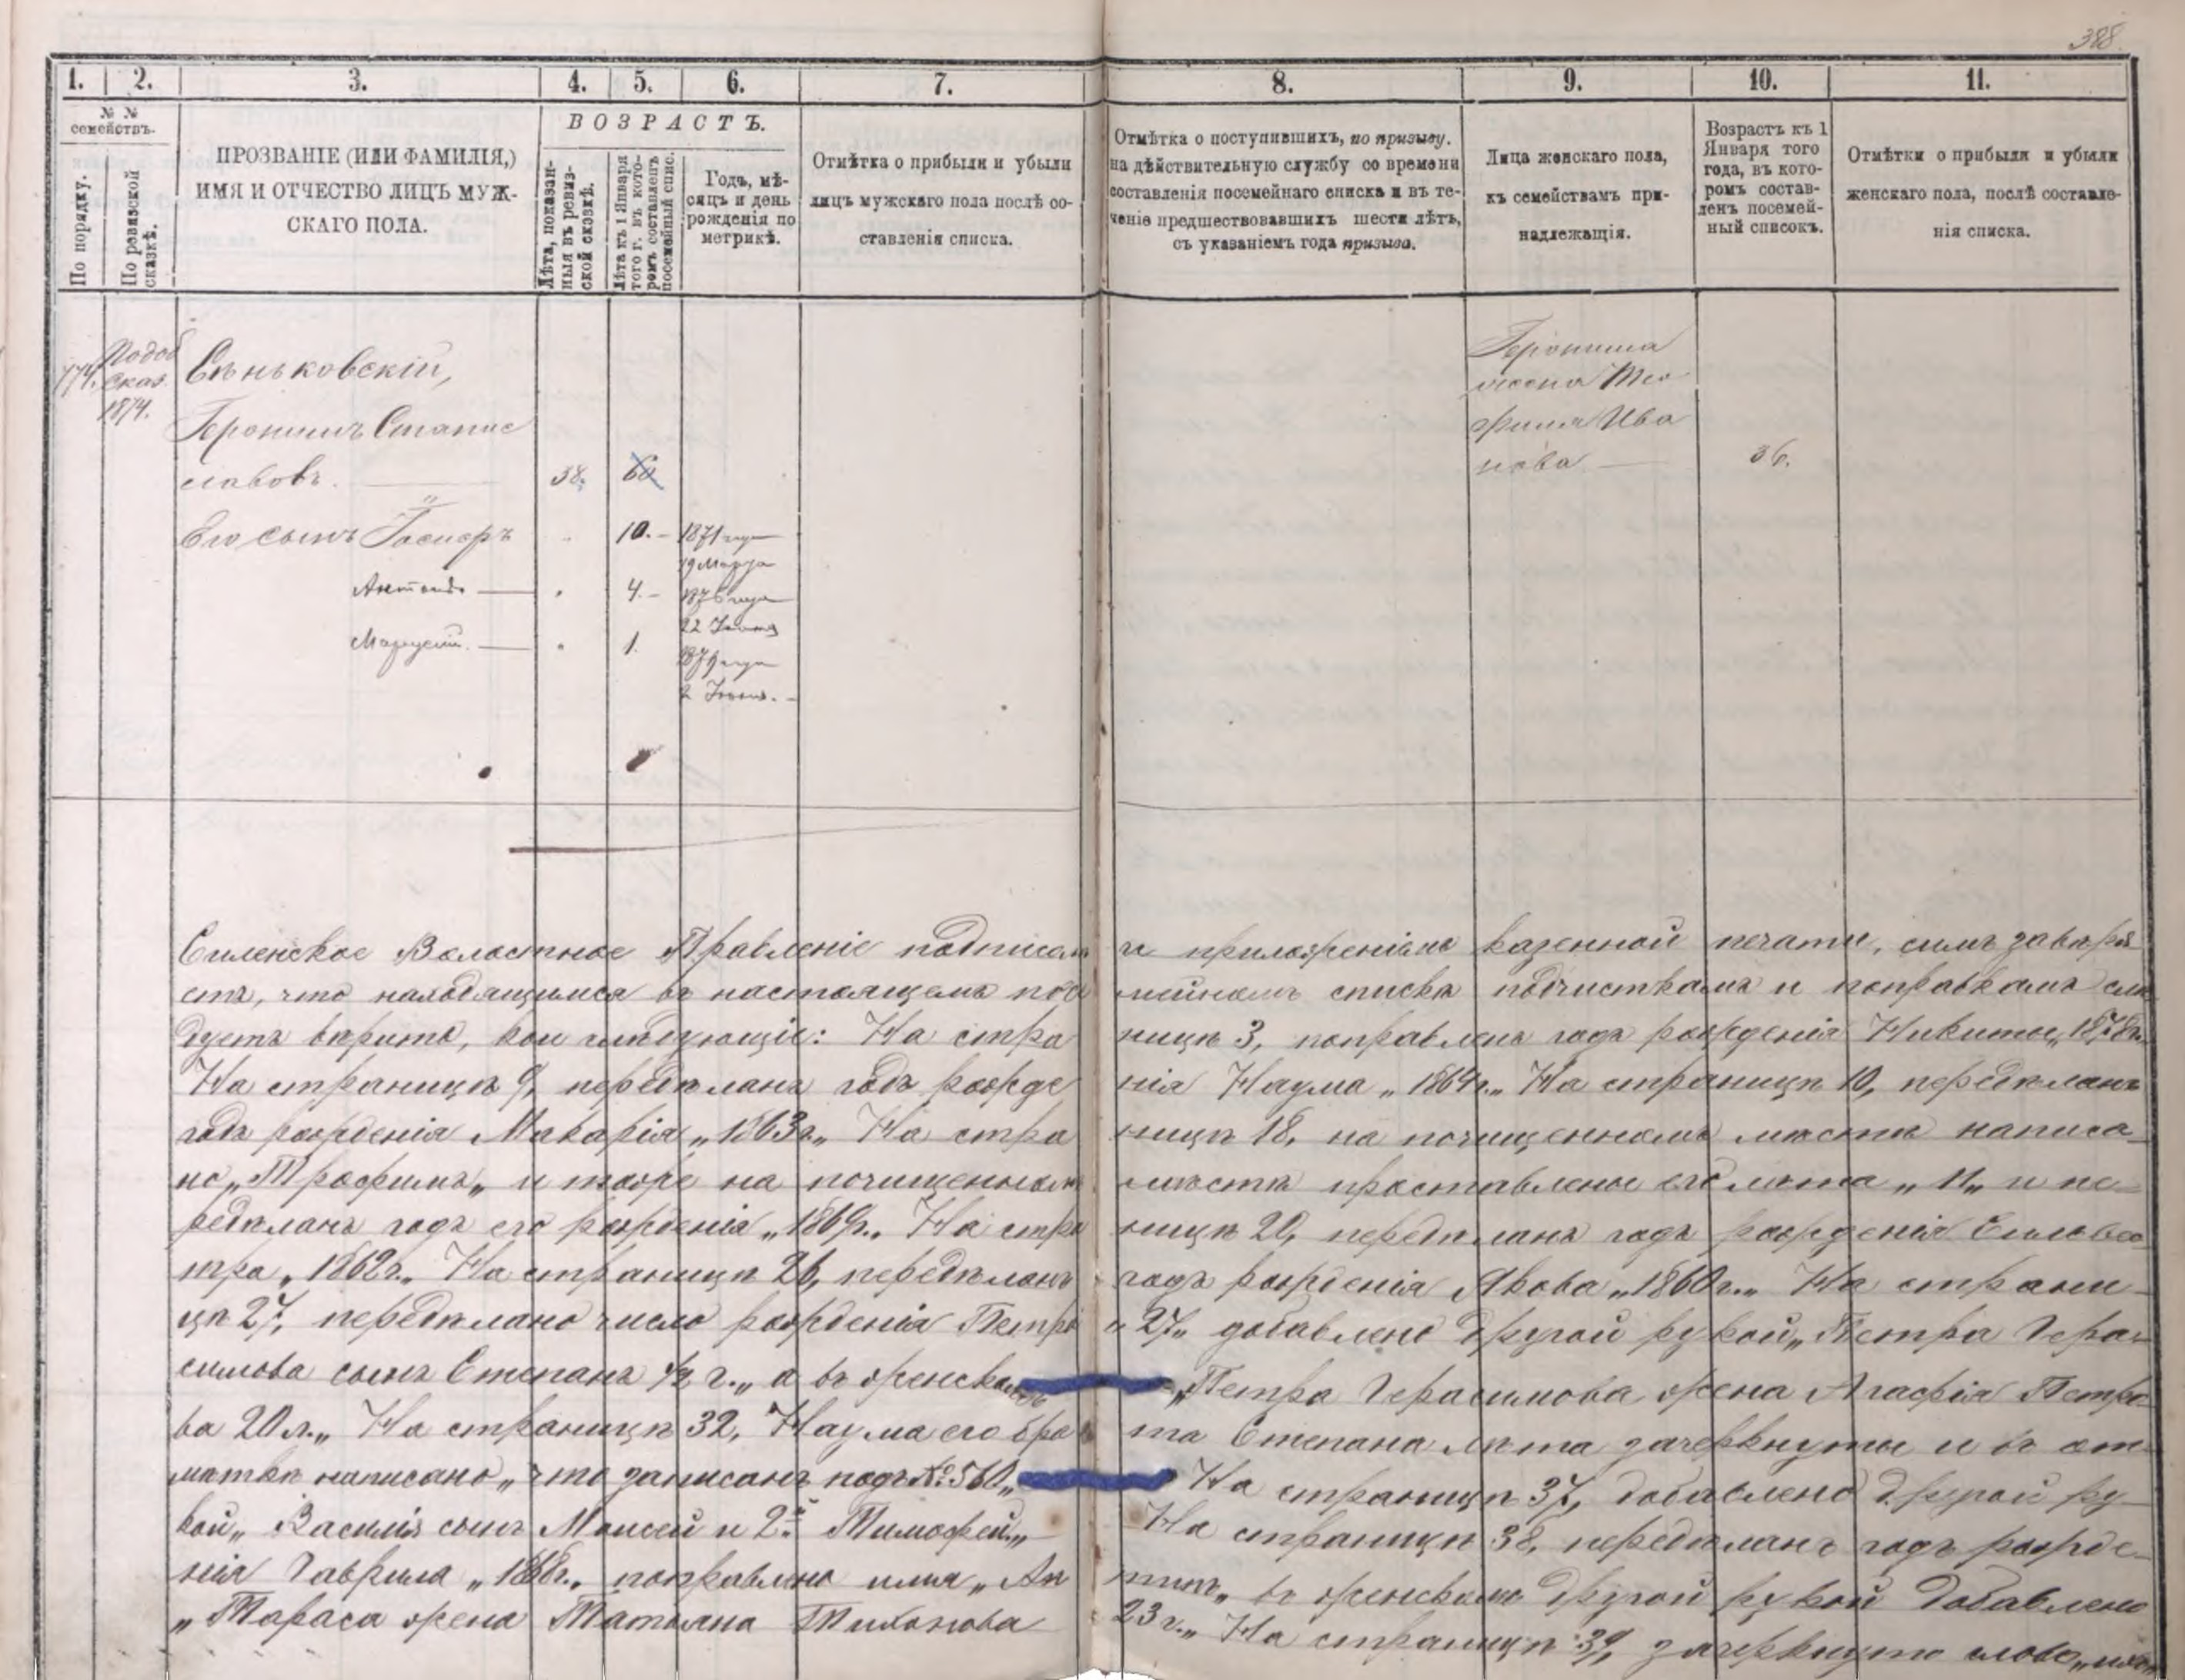 388.
1.
2.
3.
4.
5.
6.
7.
8.
9.
10.
11.
№ №
семействъ.
По порядку.
По ревизской
сказкѣ.
ПРОЗВАНІЕ (ИЛИ ФАМИЛІЯ,)
ИМЯ И ОТЧЕСТВО ЛИЦЪ МУЖ-
СКАГО ПОЛА.
ВОЗРАСТЪ.
Лѣта, показан-
ныя въ ревиз-
ской сказкѣ.
Лѣта къ 1 Января
того г. въ кото-
ромъ составленъ
посемейный спис.
Годъ, мѣ-
сяцъ и день
рожденія по
метрикѣ.
Отмѣтка о прибыли и убыли
лицъ мужскаго пола послѣ со-
ставленія списка.
Отмѣтка о поступившихъ, по призыву.
на дѣйствительную службу со времени
составленія посемейнаго списка и въ те-
ченіе предшествовавшихъ шести лѣтъ,
съ указаніемъ года призыва.
Лица женскаго пола,
къ семействамъ при-
надлежащія.
Возрастъ къ 1
Января того
года, въ кото-
ромъ состав-
ленъ посемей-
ный списокъ.
Отмѣтки о прибыли и убыли
женскаго пола, послѣ составле-
нія списка.
774.
сказ.
1874.
Сѣньковскій,
Геронимъ Станис
славовъ.
38.
60
Его сынъ Гаспер
10.
1871 года
19 Марта
Антонъ
4.
1876 года
22
1.
1879 года
2
Геронима
жена Тео
фила Ива
нова
36.
Силенское Волостное Правленіе подписом
и приложеніемъ казенной печати, симъ завѣря
етъ, что находящимся въ настоящемъ посе
мейномъ списка подчисткамъ и поправкамъ слѣ
дуетъ вѣрить, кои слѣдующіе: На стра
ницѣ 3, поправленъ годъ рожденія Никиты „1878г.
На страницѣ 9, передѣланъ годъ рожде
нія Наума „1864г.„ На страницѣ 10, передѣланъ
годъ рожденія Макарія „1863г.„ На стра
ницѣ 18, на почищенномъ мѣстѣ написа-
но „Трофимъ„ и тоже на почищенном
мѣстѣ проставлены его лѣта „11„ и пе-
редѣланъ годъ его рожденія „1869г.„ На стра
ницѣ 20, передѣланъ годъ рожденія Сильвес
тра „1862г.„ На страницѣ 26, передѣланъ
годъ рожденія Якова „1860г.„ На страни-
цѣ 27, передѣлано число рожденія Петра
„27„ добавлено другой рукой „Петра Гера-
симова сынъ Степанъ 1/2 г.„ а въ женском
„Петра Герасимова жена Агафія Петро-
ва 20 л.„ На страницѣ 32, Наума его бра
та Степана лѣта зачеркнуты и въ от-
мѣткѣ написано „что записанъ подъ № 560„
На страницѣ 37, добавлено другой ру-
кой „Василія сынъ Моисей и 2й Тимофей„
На страницѣ 38, передѣланъ годъ рожде-
нія Гаврила „1868г.„ поправлено имя „Ан
типъ„ въ женскомъ другой рукой добавлено
„Тараса жена Татьяна Тихонова
23 г.„ На страницѣ 39, зачеркнуто слово